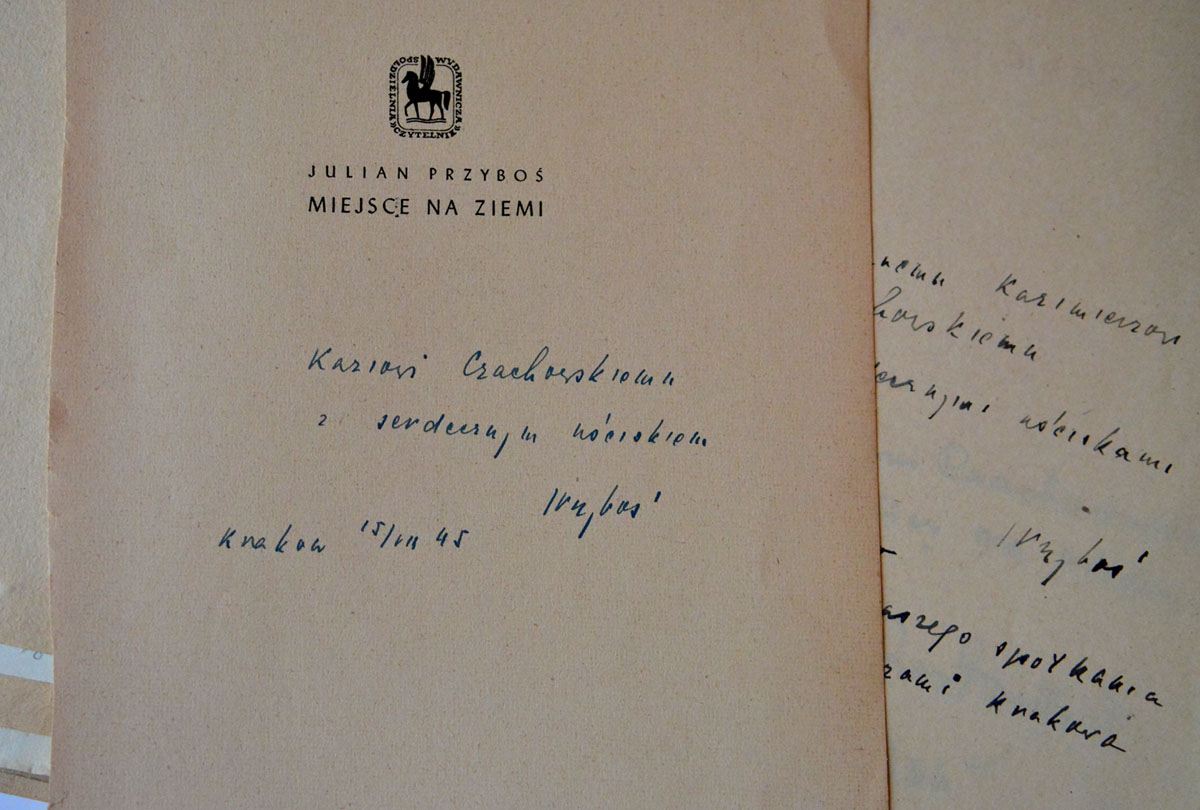 SPÓŁDZIELNIA WYDAWNICZA
»CZYTELNIK«
JULIAN PRZYBOŚ
MIEJSCE NA ZIEMI
Kaziowi Czachowskiemu
z serdecznym uściskiem
Przyboś
Kraków 15/VII 45
nemu Kazimierzowi
howskiemu
decznymi uściskami
Przyboś
aszego spotkania
rami Krakowa